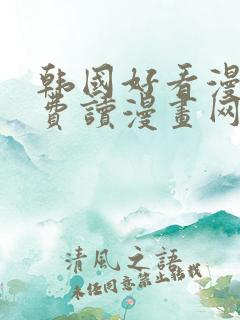 韩国好看漫
费讀漫畫网
清風之語
未经同意禁止转载